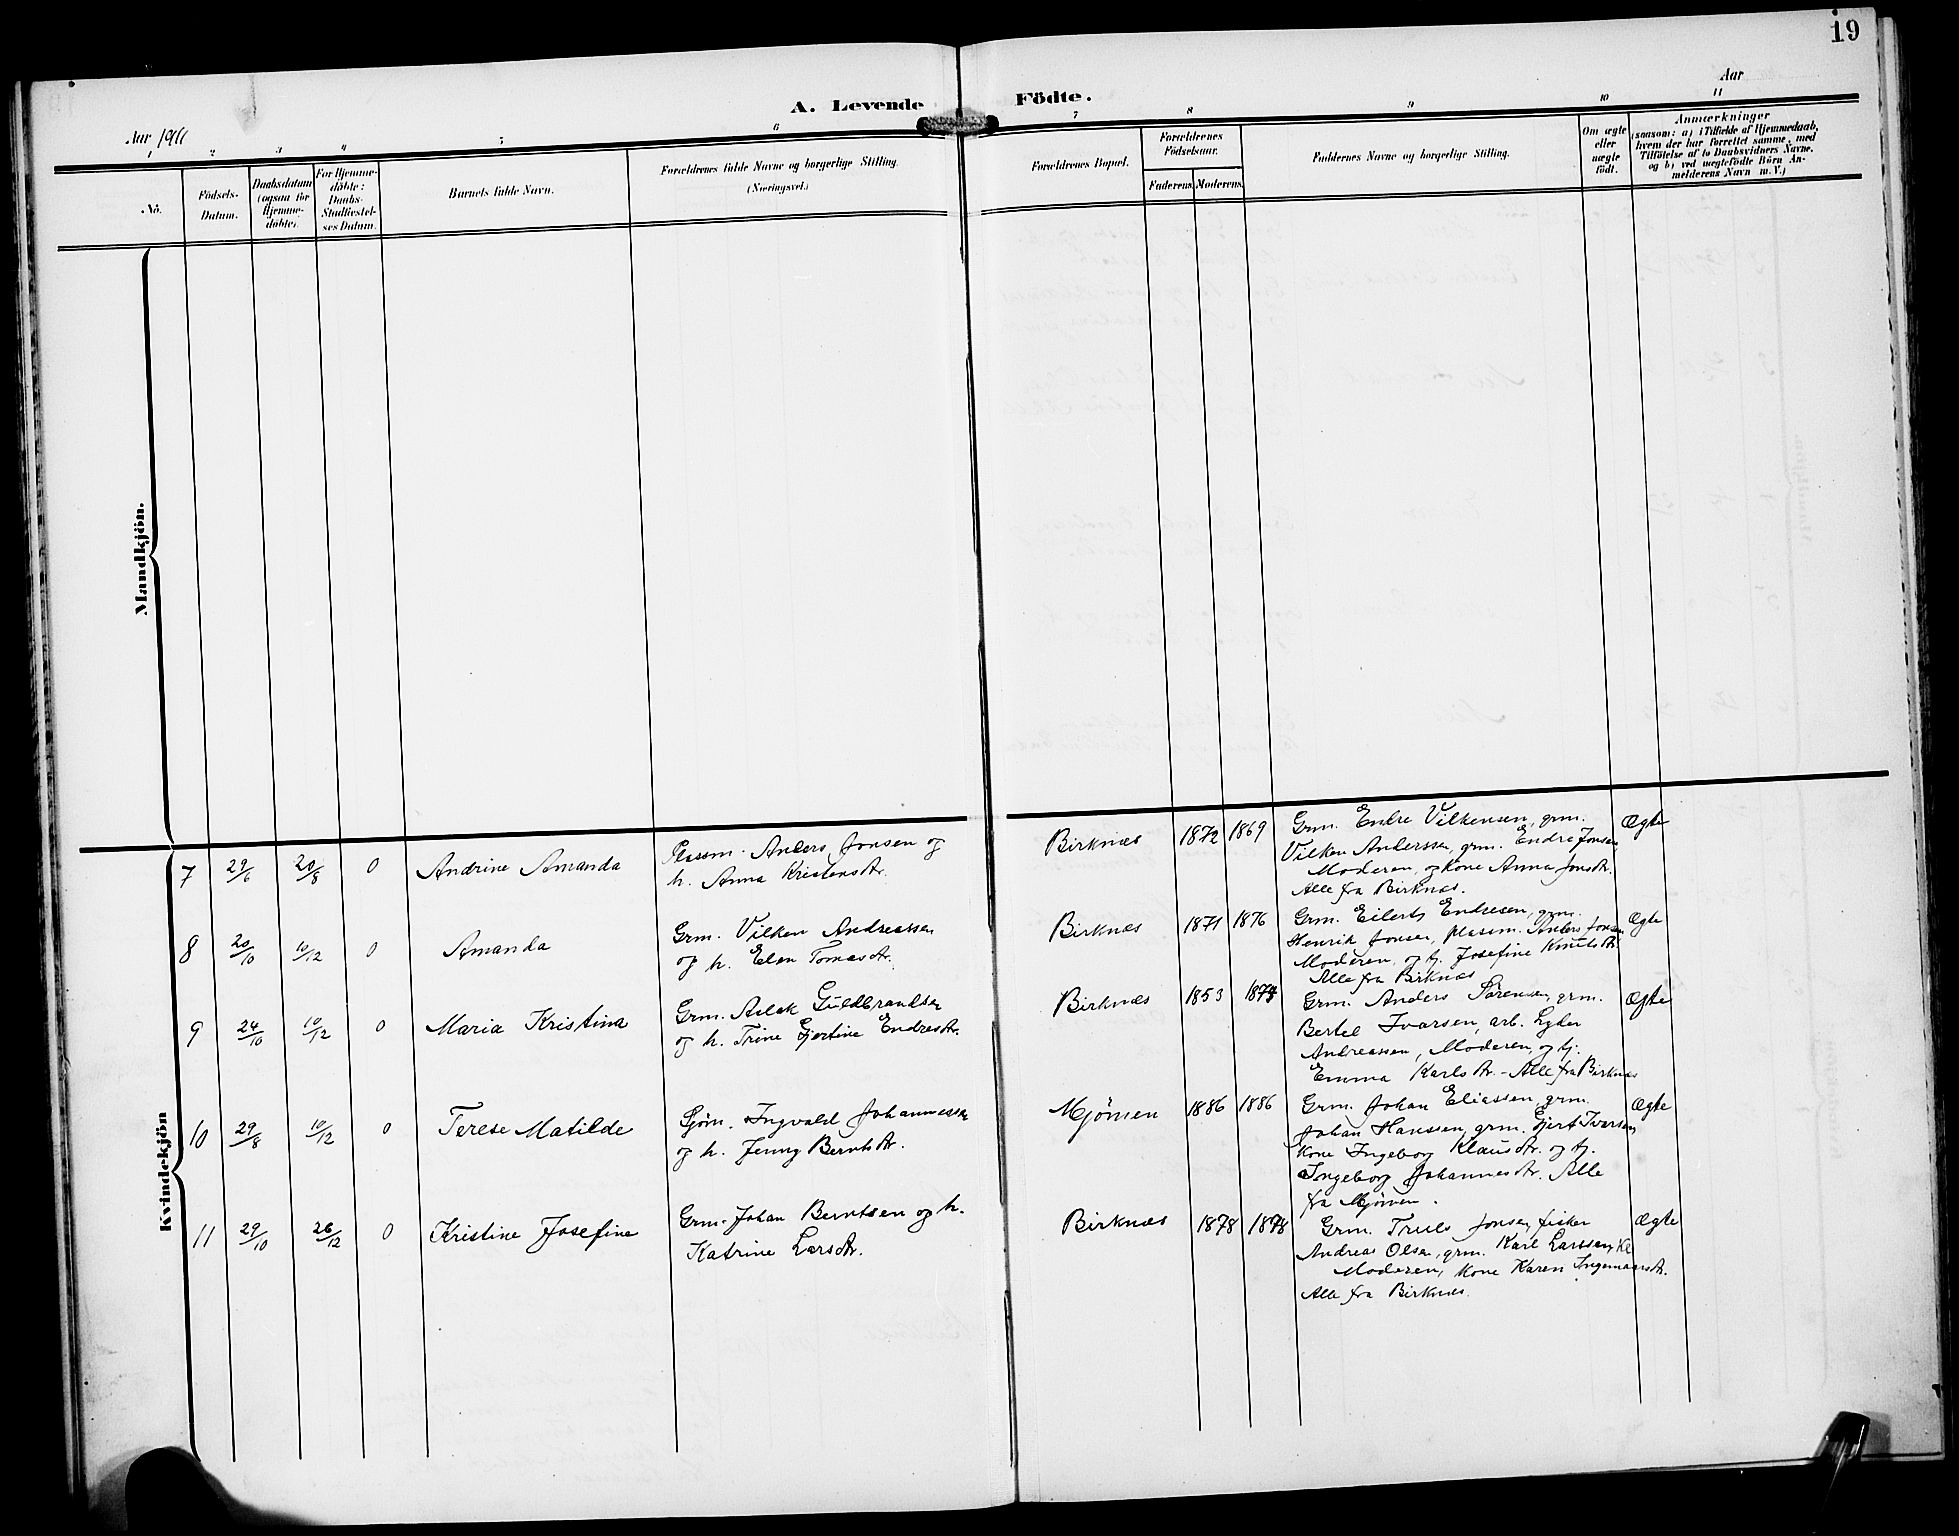 19
Aar
A. Levende Födte.
Aar 1911
1 2 3 4 5 6 7 8 9 10 11
No.
Födsels-
Datum.
Daabsdatum
(ogsaa for
Hjemme-
döbte).
For Hjemme-
döbte:
Daabs-
Stadfæstel-
ses Datum.
Barnets fulde Navn.
Forældrenes fulde Navne og borgerlige Stilling.
(Næringsvei.)
Forældrenes Bopæl.
Forældrenes
Födselsaar.
Faderens. Moderens.
Faddernes Navne og borgerlige Stilling.
Om ægte
eller
uægte
født.
Anmærkninger
(saasom: a) i Tilfælde af Hjemmedaab,
hvem der har forrettet samme, med
Tilföielse af to Daabsvidners Navne,
og b) ved uægtefödte Börn An-
melderens Navn m. V.)
Mandkjön.
Kvindekjön
7 29/6 20/8 0 Andrine Amanda
Plassm. Anders Jonsen og
h. Anna Kristensdtr.
Birknæs 1872 1869
Grm. Endre Vilkensen, grm.
Vilken Anderssen, grm. Endre Jonsen
Moderen, og kone Anna Jonsdtr.
Alle fra Birknæs.
Ægte
8 20/10 10/12 0 Amanda
Grm. Vilken Andreassen
og h. Elen Tomasdtr.
Birknæs 1871 1876
Grm. Eilert Endresen, grm.
Henrik Jonsen, plassm. Anders Jonsen
Moderen, og tj. Josefine Knutsdtr.
Alle fra Birknæs
Ægte
9 24/10 10/12 0 Maria Kristina
Grm. Aslak Guldbrandsen
og h. Trine Gjertine Endresdtr.
Birknæs 1853
Grm. Anders Sörensen, grm.
Bertel Ivarsen, arb. Lyder
Andreassen, Moderen, og tj.
Emma Karlsdtr. - Alle fra Birknæs
Ægte
10 29/8 10/12 0 Terese Matilde
Gjöm. Ingvald Johannessen
og h. Jenny Berntsdtr.
Mjömen 1886 1886
Grm. Johan Eliassen, grm.
Johan Hanssen, grm. Gjert Ivarsen,
kone Ingeborg Klausdtr. og tj.
Ingeborg Johannesdtr. Alle
fra Mjömen.
Ægte
11 29/10 26/12 0 Kristine Josefine
Grm. Johan Berntsen og h.
Katrine Larsdtr.
Birknæs 1878 1878
Grm. Truls Jonsen, fisker
Andreas Olsen, grm. Karl Larssen,
Moderen, kone Karen Ingemannsdtr.
Alle fra Birknæs.
Ægte